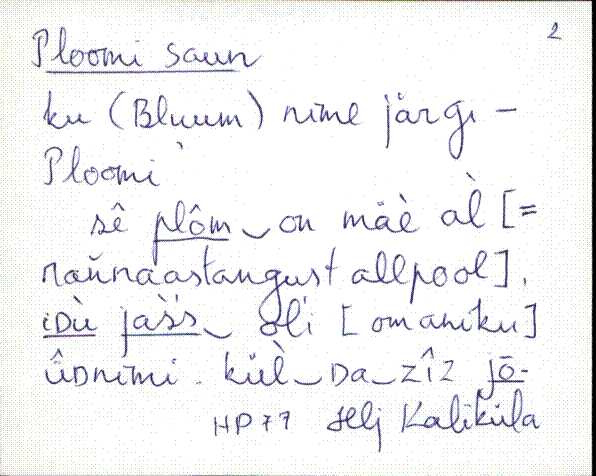 2
Ploomi saun
ku (Bluum) nime järgi -
Ploomi
sê plôm on mäè àl [=
rannaastangust allpool].
iDù jašš oli [omaniku]
ûDnimi. kùl Da zîz jō-
HP77 Helj Kaliküla